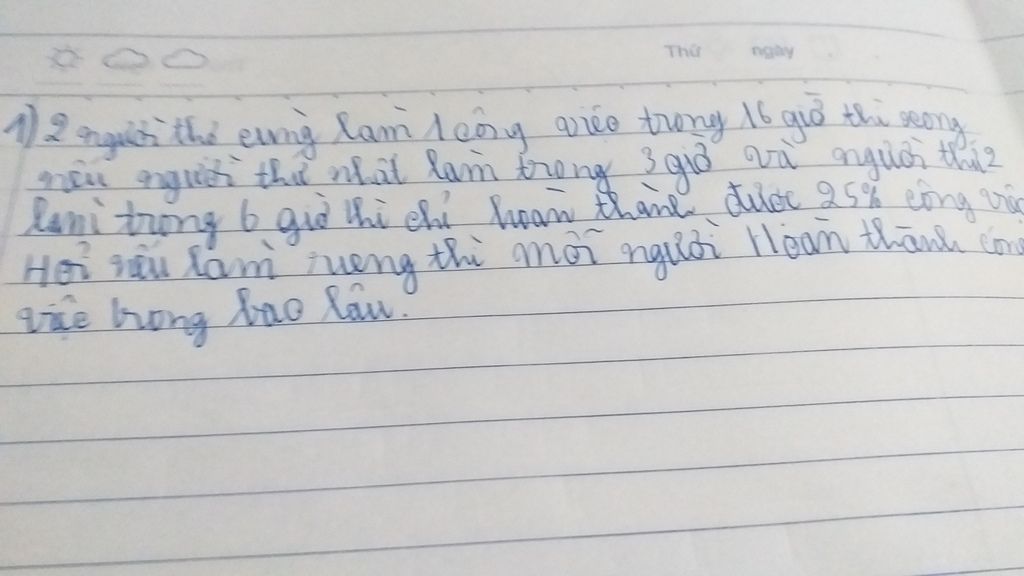 Thứ ngày
1) 2 người thợ cùng làm 1 công việc trong 16 giờ thì xong
nếu người thứ nhất làm trong 3 giờ và người thứ 2
làm trong 6 giờ thì chỉ hoàn thành được 25% công việc
Hỏi nếu làm rieng thì mỗi người Hoàn thành công
việc trong bao lâu.